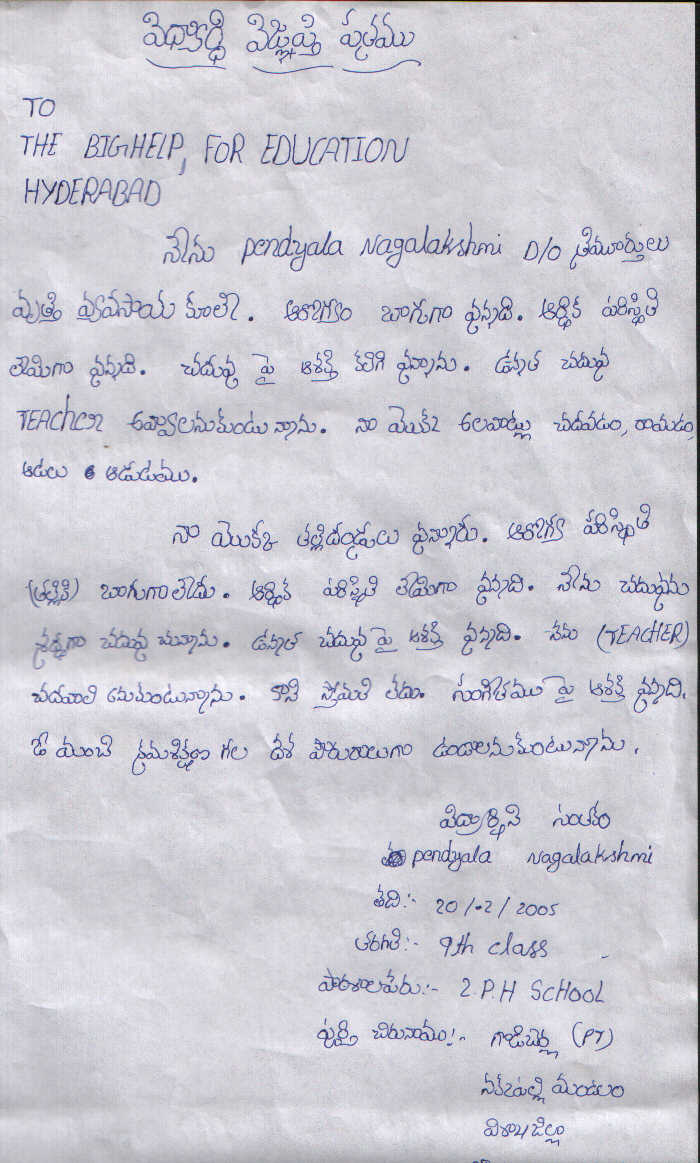 విద్యార్ధి విజ్ఞప్తి పత్రము
TO
THE BIGHELP, FOR EDUCATION
HYDERABAD
నేను pendyala Nagalakshmi D/O త్రిమూర్తులు
వృత్తి వ్యవసాయ కూలి. ఆరోగ్యం బాగుగా వున్నది. ఆర్ధిక పరిస్థితి
లేమిగా వున్నది. చదువు పై ఆశక్తి కలిగి వున్నాను. ఉన్నత చదువు
TEACHER అవ్వాలనుకుంటున్నాను. నా యొక్క అలవాట్లు చదవడం, రాయడం,
ఆటలు ఆడుటము.
నా యొక్క తల్లిదండ్రులు వున్నారు. ఆరోగ్య పరిస్థితి
(తల్లికి) బాగుగాలేదు. ఆర్ధిక పరిస్థితి లేమిగా వున్నది. నేను చదువును
చదువు చున్నాను. ఉన్నత చదువు పై ఆశక్తి వున్నది. నేను (TEACHER)
చదవాలి అనుకుంటున్నాను. కాని స్తోమతి లేదు. సంగీతము పై ఆశక్తి వున్నది.
ఓ మంచి క్రమశిక్షణ గల దేశ పౌరురాలుగా ఉండాలనుకుంటున్నాను.
విద్యార్థిని సంతకం
pendyala Nagalakshmi
తేది:- 20/02/2005
తరగతి:- 9th class
పాఠశాలపేరు:- Z.P.H SCHOOL
పూర్తి చిరునామం:- (PT)
నక్కపల్లి మండలం
విశాఖజిల్లా